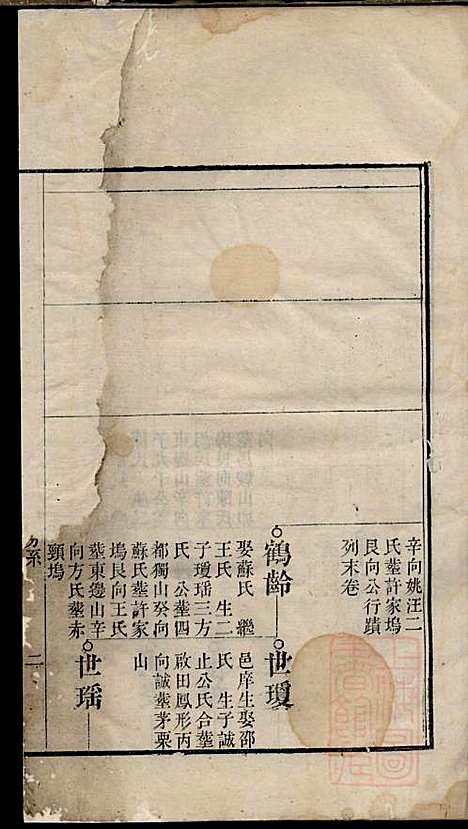 辛向姚汪二
氏墓許家塢
艮向公行蹟
列末卷
鶴齡
娶蘇氏 繼
王氏 生二
子瓊瑤三方
氏 公墓四
都獨山癸向
蘇氏墓許家
塢艮向王氏
墓東邊山辛
向方氏墓赤
頸塢
世瓊
邑庠生娶邵
氏 生子誠
止公氏合墓
啟田鳳形丙
向誠墓茅栗
山
世瑶
二